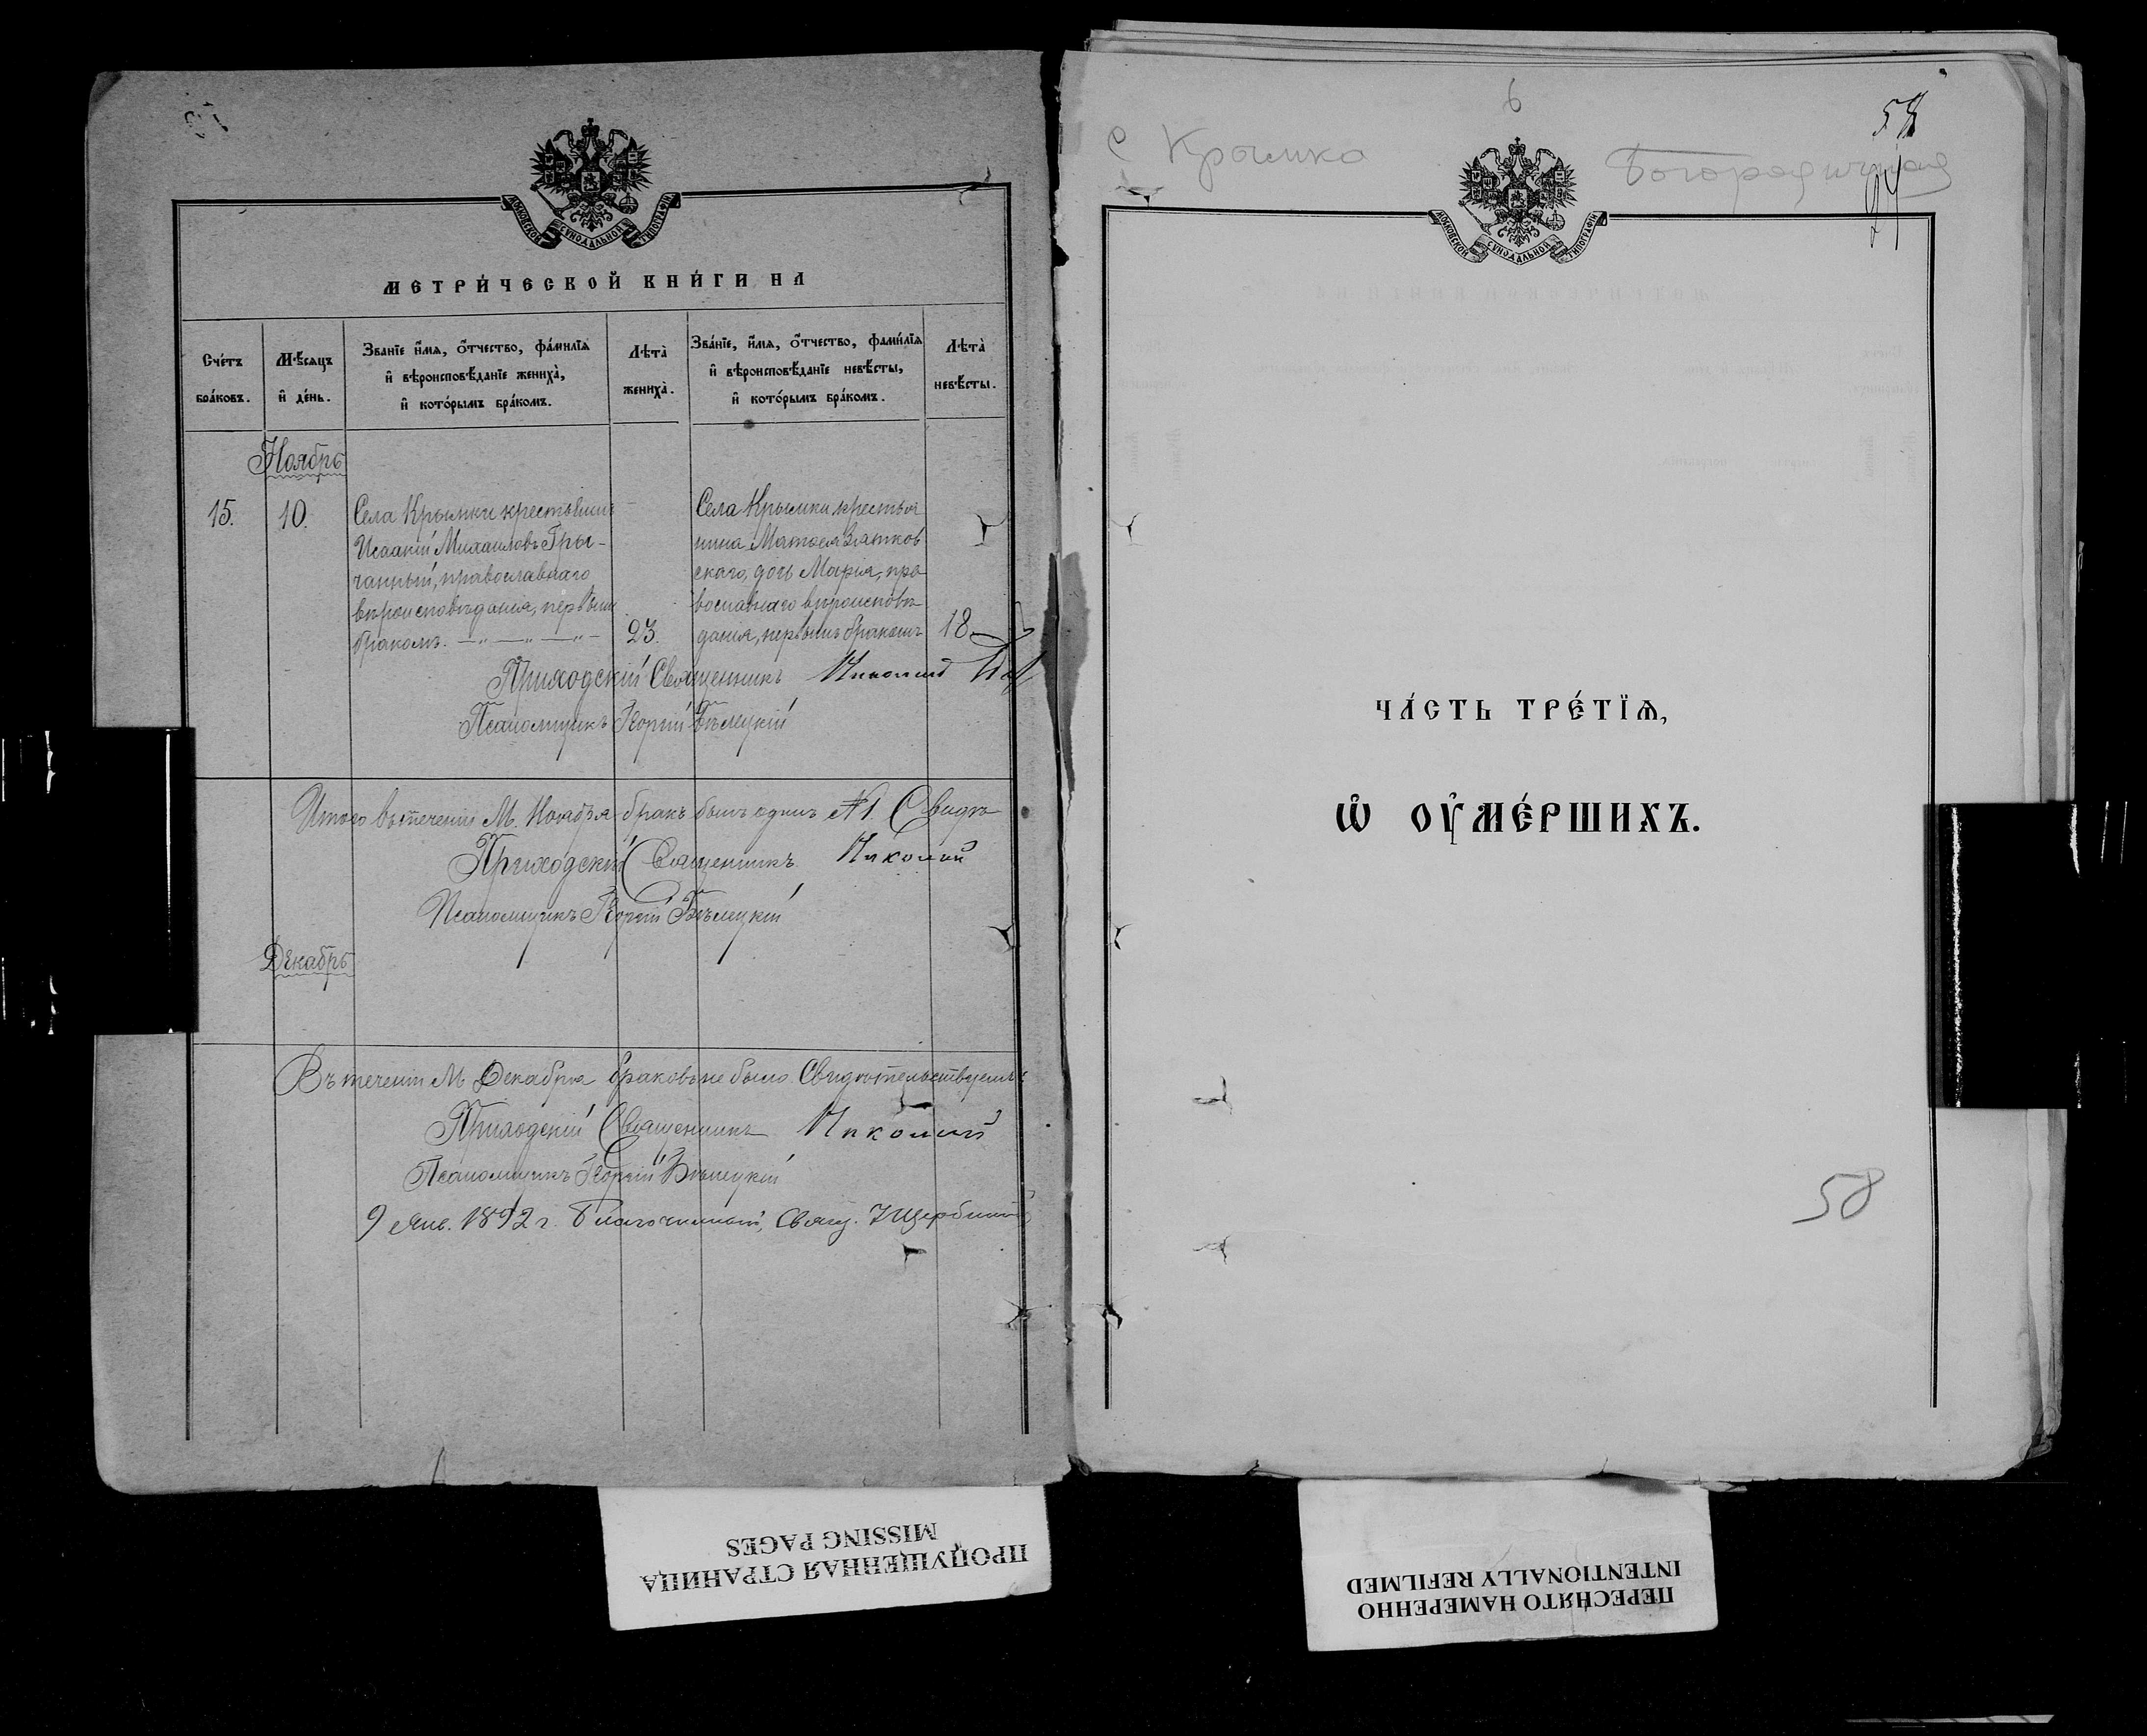 МОСКОВСКОЙ СУНОДАЛЬНОЙ ТИПОГРАФІИ
МЕТРИ́ЧЕСКОЙ КНИ́ГИ НА
Сче́тъ бра́ковъ.
Мѣ́сяцъ и҆ де́нь.
Зва́нїе и҆́мѧ, ѻ҆́тчество, фамѵ́лїѧ
и҆ вѣроисповѣ́данїе жениха̀,
и҆ кото́рымъ бра́комъ.
Лѣта̀ жениха̀.
Зва́нїе, и҆́мѧ, ѻ҆́тчество, фами́лїѧ
и҆ вѣроисповѣ́данїе невѣ́сты,
и҆ кото́рымъ бра́комъ.
Лѣта̀ невѣ́сты.
Ноябрь
15.
10.
Села Крымки крестьянинъ
Исаакій Михаиловъ Гры-
чанный, православнаго
вѣроисповѣданія, первымъ
бракомъ. —"—"—"—
23.
Села Крымки крестья
нина Матѳея Зятков
скаго, дочь Марія, пра
вославнаго вѣроисповѣ
данія, первымъ бракомъ
18
Приходскій Священникъ Николай
Псаломщикъ Георгій Бѣлецкій
Итого въ теченіи М. Ноября бракъ былъ одинъ №1. Свидѣ
Приходскій Священникъ Николай
Псаломщикъ Георгій Бѣлецкій
Декабрь
Въ теченіи М. Декабря браковъ не было. Свидѣтельствуемъ:
Приходскій Священникъ Николай
Псаломщикъ Георгій Бѣлецкій
9 Янв. 1892 г. Благочинный, Свящ. Щербин
6
58
с Крымка
Богородичная
24
МОСКОВСКОЙ СУНОДАЛЬНОЙ ТИПОГРАФІИ
ЧА́СТЬ ТРЕ́ТЇѦ,
Ѡ҆ ОУ҆МЕ́РШИХЪ.
58
ПРОПУЩЕННАЯ СТРАНИЦА
MISSING PAGES
ПЕРЕСНЯТО НАМЕРЕННО
INTENTIONALLY REFILMED